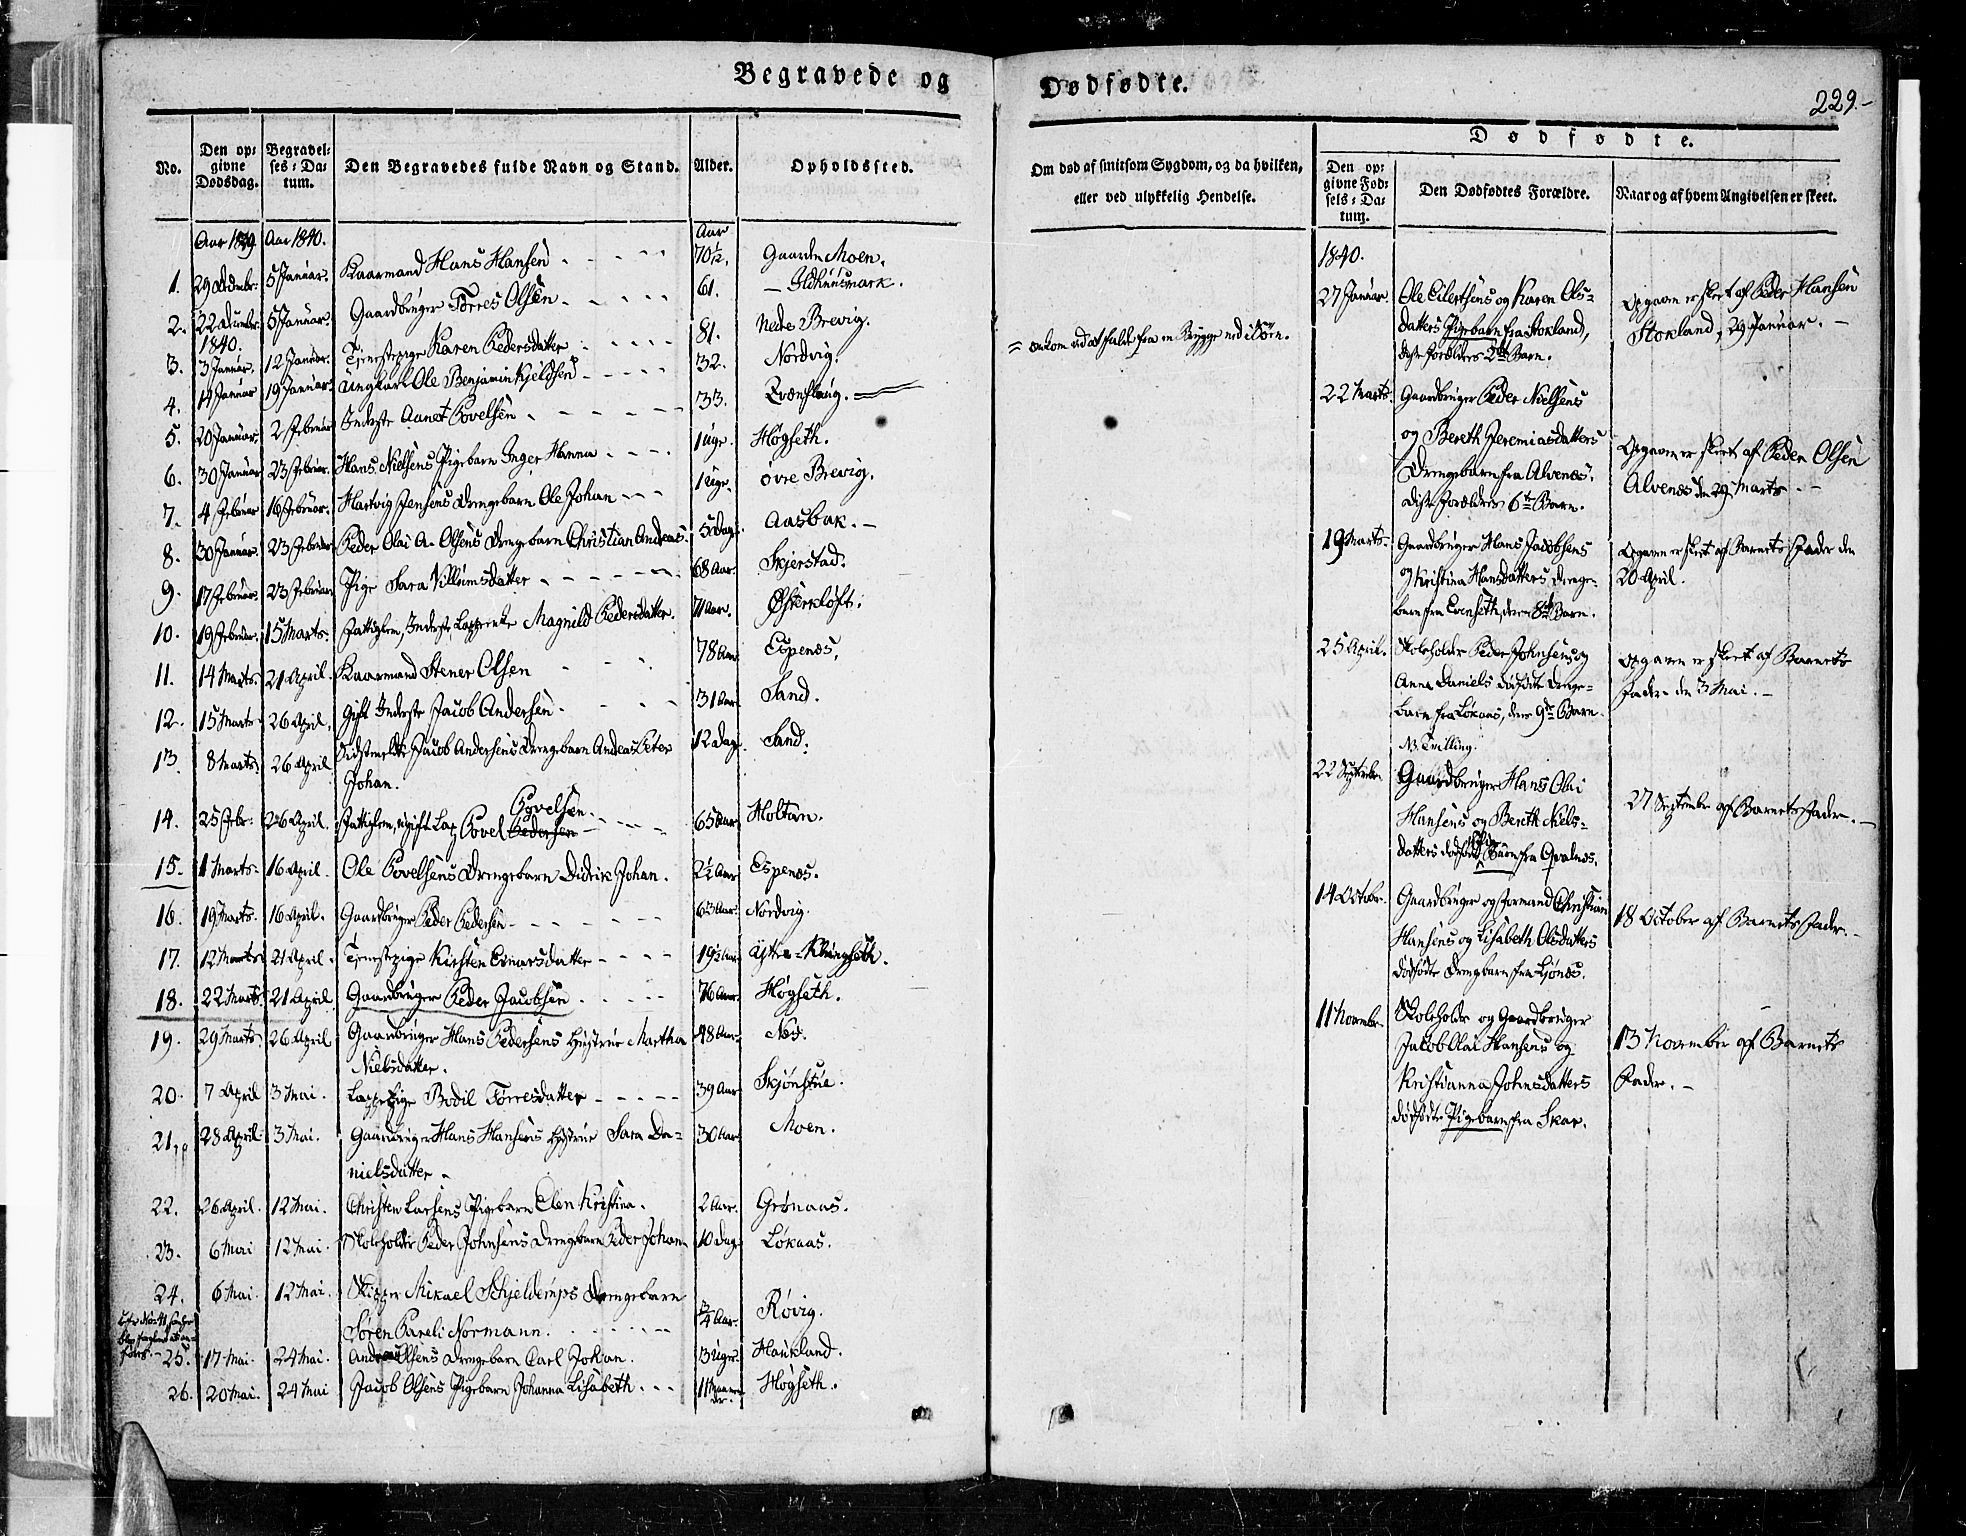 Begravede og
Dødfødte.
229.-
No.
Den op-
givne
Dødsdag.
Begravel-
ses-Da-
tum.
Den Begravedes fulde Navn og Stand.
Alder.
Opholdssted.
Om død af smitsom Sygdom, og da hvilken,
eller ved ulykkelig Hendelse.
Dødfødte.
Den op-
givne Fød-
sels-Da-
tum.
Den Dødfødtes Forældre.
Naar og af hvem Angivelsen er skeet.
Aar 1839. Aar 1840. Aar
1. 29 Decembr: 5 Januar. Kaarmand Hans Hansen 70 1/12. Gaarden Moen.
2. 22 Decembr: 5 Januar. Gaardbruger Torres Olsen 61. - Ildhuusmark.
1840.
3. 3 Januar. 12 Januar. Tjenestepige Karen Pedersdatter 81. Nedre Brevig.
4. 14 Januar 19 Januar: Ungkarl Ole Benjamin Kjeldsen 32. Nordvig.
5. 20 Januar. 2 Februar Inderste Aanet Povelsen 33. Kvænflaug.
6. 30 Januar 23 Februar. Hans Nielsens Pigebarn Inger Hanna 1 uge. Høgseth.
7. 4 Februar 16 Februar. Hartvig Jensens Drengebarn Ole Johan 1 uge. øvre Brevig.
8. 30 Januar. 23 Februar Peder Olai A. Olsens Drengebarn Christian Andreas. 5 Dage. Aasbak.
9. 17 Februar. 23 Februar Pige Sara Villumsdatter 68 Aar. Skjerstad.
10. 19 Februar. 15 Marts. Fattiglem, Inderst, Lappenke Magnild Pedersdatter. 71 Aar. Østerkløft.
11. 14 Marts. 21 April. Kaarmand Stener Olsen 78 Aar. Espenæs,
12. 15 Marts 26 April. Gift Inderste Jacob Andersen 31 Aar. Sand.
13. 8 Marts 26 April Sidstmeldte Jacob Andersens Drengebarn Andreas Peter 12 Dage. Sand.
Johan.
Povelsen.
14. 25 Febr. 26 April. Fattiglem, ugift Lap Povel Pedersen 65 Aar Holtan.
15. 1 Marts. 16 April. Ole Povelsens Drengebarn Didrik Johan. 2½ Aar Espenæs.
16. 19 Marts. 16 April. Gaardbruger Peder Pedersen 63 Aar. Nordvig.
17. 12 Marts 21 April. Tjenestepige Kirsten Einarsdatter 19½ Aar Ystre-Klungseth.
18. 22 Marts. 21 April Gaardbruger Peder Jacobsen 76 Aar. Høgseth.
19. 29 Marts 26 April Gaardbruger Hans Pedersens Hustrue Martha 48 Aar. Næs.
Nielsdatter.
20. 7 April 3 Mai. Lappepige Bodil Torresdatter 39 Aar Skjønstue.
21. 28 April 3 Mai. Gaardbruger Hans Hansens Hustrue Sara Da- 30 Aar Moen.
nielsdatter.
22. 26 April. 12 Mai. Christen Larsens Pigebarn Elen Kristina. 2 Aar. Grønaas.
23. 6 Mai 12 Mai. Skoleholder Peder Johnsens Drengebarn Peder Johan 10 Dage Løkaas.
24. 6 Mai. 12 Mai. Skipper Mikael Schjelderups Drengebarn
Søren Pareli Normann. ¾ Aar. Røvig.
25. 17 Mai. 24 Mai. Andreas Olsens Drengebarn Carl Johan. 3 Uger. Haukland.
26. 20 Mai. 24 Mai Jacob Olsens Pigebarn Johanna Lisabeth 11 Maane-
der. Høgseth.
= omkom ved at falde fra en Brygge ned i Søen.
1840.
27 Januar Ole Eilertsens og Karen Ols-
datters Pigebarn fra Stokland,
disse Forældres 2det Barn.
Opgaven er skeet af Peder Hansen
Stokland, 29 Januar.
22 Marts. Gaardbruger Peder Nielsens
og Bereth Jeremiasdatters
Drengebarn fra Alvenæs.
disse Forældres 6te Barn.
Opgaven er skeet af Peder Olsen
Alvenæs den 29 Marts.
19 Marts. Gaardbruger Hans Jacobsens
og Kristina Hansdatters Drenge-
barn fra Evenseth, deres 8de Barn.
Opgaven er skeet af Barnets Fader den
20 April.
25 April. Skoleholder Peder Johnsens og
Anna Daniels dødfødte Drenge-
barn fra Løkaas, deres 9de Barn.
NB. Tvilling.
Opgaven er skeet af Barnets
Fader den 3 Mai.
22 September Gaardbruger Hans Olai
Hansens og Bereth Niels-
datters dødfødte Pige Barn fra Qvalnes.
27 September af Barnets Fader.
14 October. Gaardbruger og Formand Christian
Hansens og Lisabeth Olsdatters
dødfødte Drengebarn fra Ljønes.
18 October af Barnets Fader.
11 Novembr. Skoleholder og Gaardbruger
Jakob Olai Hansens og
Kristianna Johnsdatters
dødfødte Pigebarn fra Skar.
13 November af Barnets
Fader.